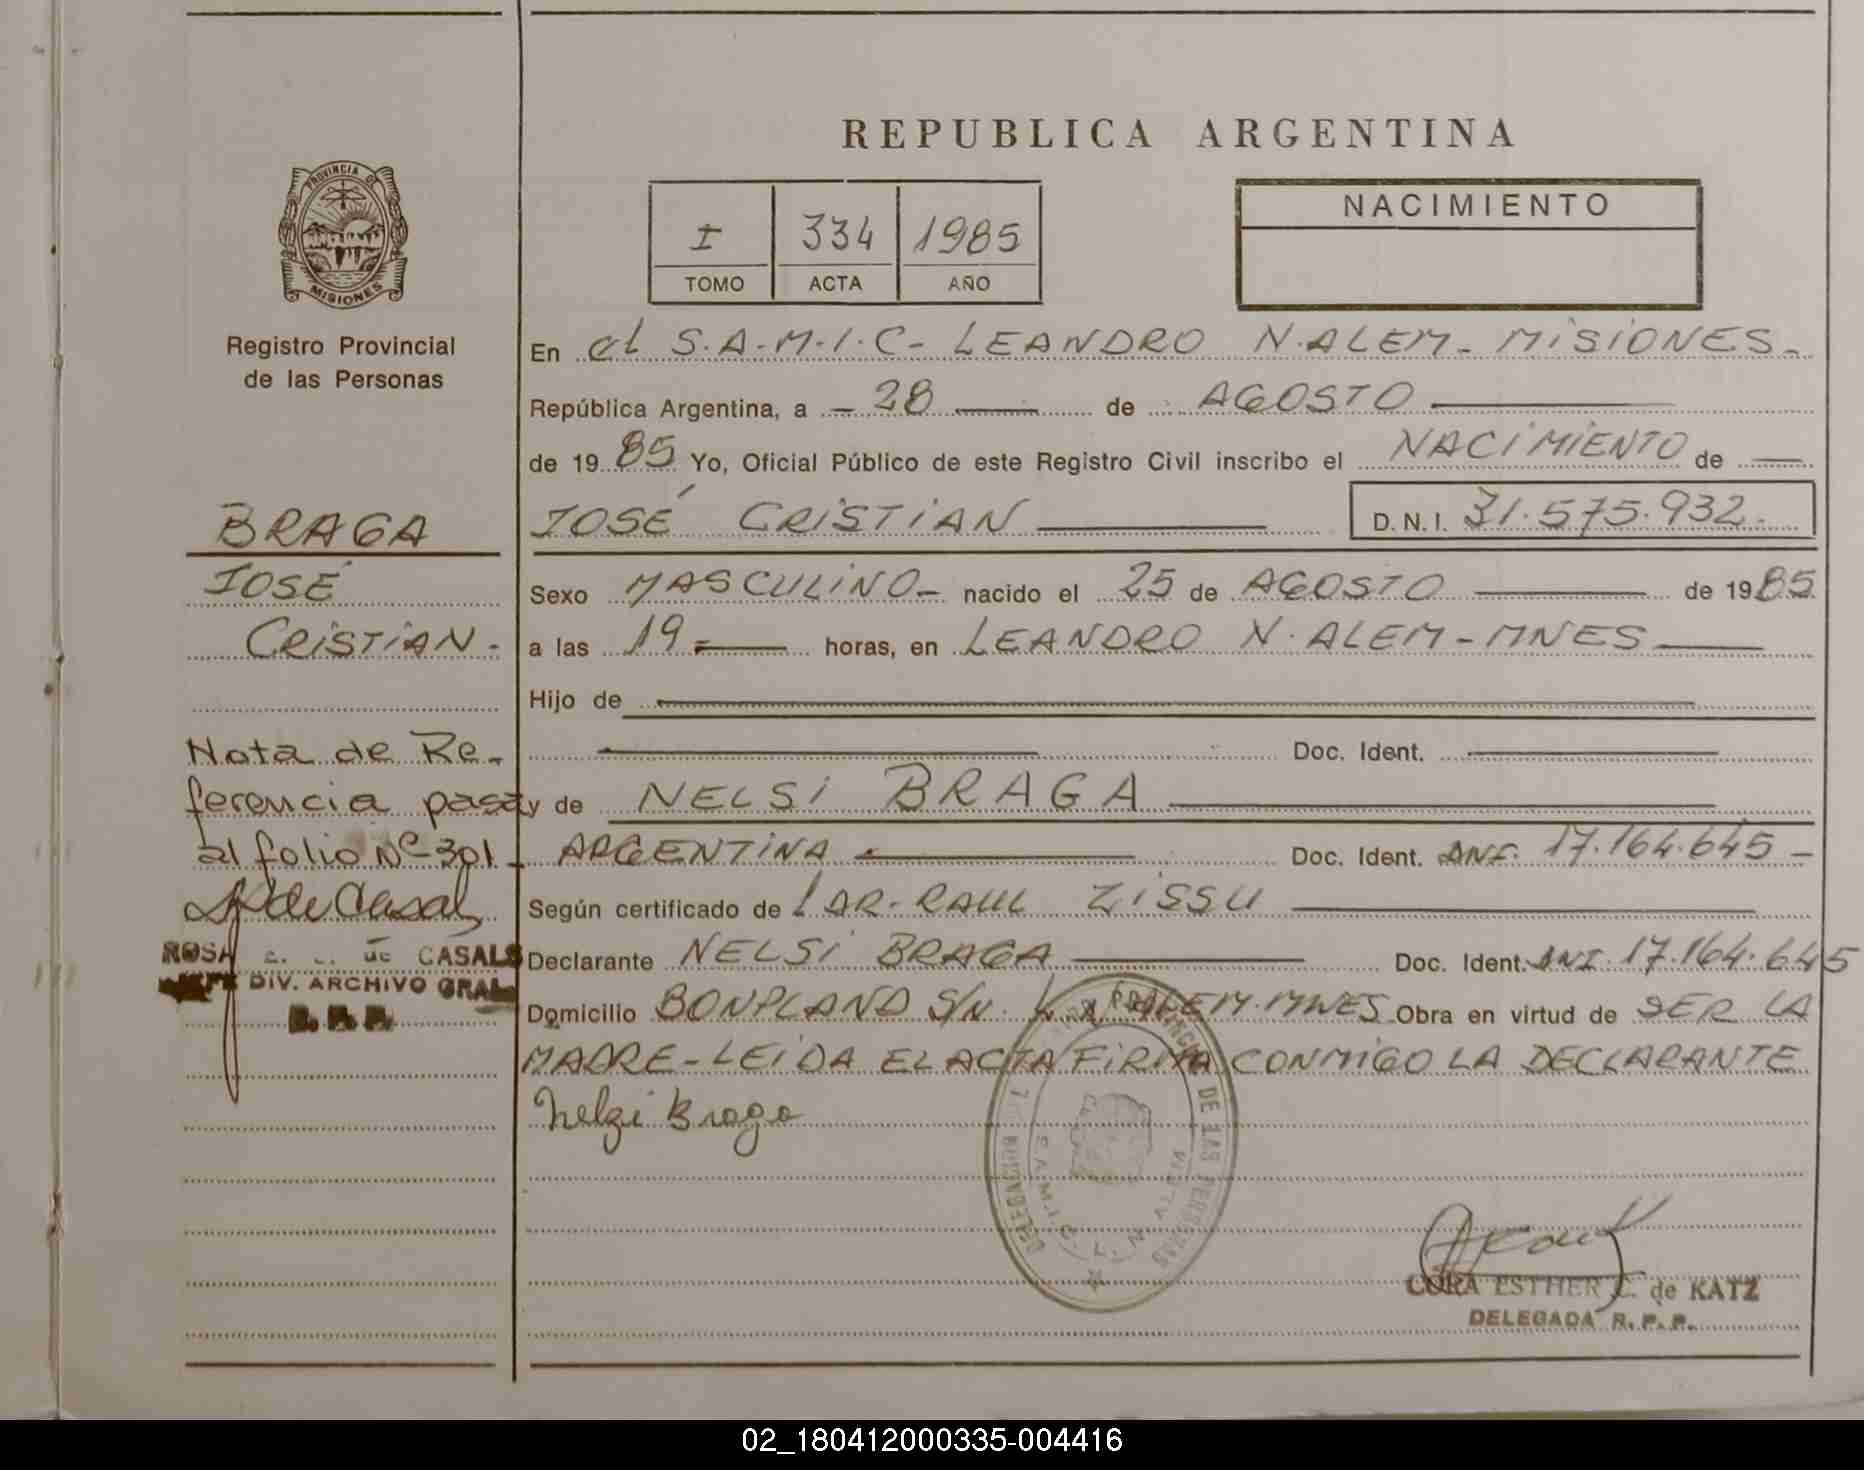 REPUBLICA ARGENTINA
PROVINCIA DE
MISIONES
Registro Provincial
de las Personas
I 334 1985
TOMO ACTA AÑO
NACIMIENTO
En el S.A.M.I.C- LEANDRO N.ALEM- MISIONES-
República Argentina, a - 28 de AGOSTO
de 1985 Yo, Oficial Público de este Registro Civil inscribo el NACIMIENTO de
JOSÉ CRISTIAN D.N.I. 31.575.932.
Sexo MASCULINO- nacido el 25 de AGOSTO de 1985
a las 19 horas, en LEANDRO N. ALEM-MNES
Hijo de
Doc. Ident.
y de NELSI BRAGA
ARGENTINA Doc. Ident. DNI. 17.164.645-
Según certificado de DR. RAUL ZISSU
Declarante NELSI BRAGA Doc. Ident. DNI 17.164.645
Domicilio BONPLAND S/N. L.N.ALEM.MNES Obra en virtud de SER LA
MADRE-LEIDA EL ACTA FIRMA CONMIGO LA DECLARANTE
Nelzi Braga
BRAGA
JOSÉ
CRISTIAN-
Nota de Re-
ferencia pasa
al folio Nº 301-
de Casals
ROSA de CASALS
DIV. ARCHIVO GRAL
DE LAS PERSONAS
DELEGACION
CORA ESTHER C. de KATZ
DELEGADA R.P.P.
02_180412000335-004416